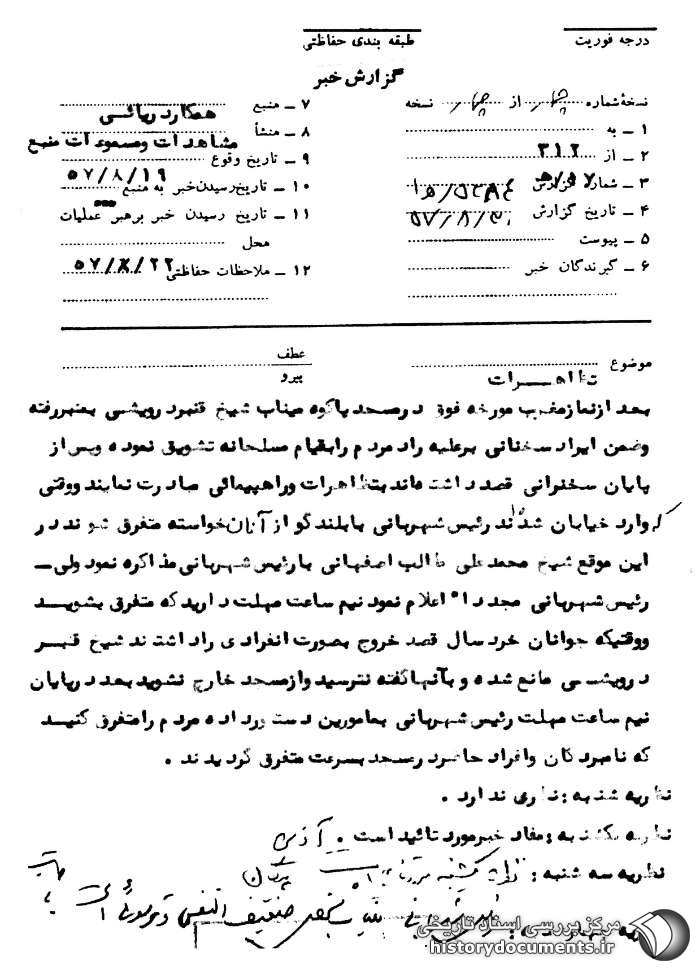 درجه فوریت
طبقه بندی حفاظتی
گزارش خبر
نسخهٔ شماره چهار از چهار نسخه
۱ ــ به
۲ ــ از ۳۱۲
۳ ــ شماره گزارش
۴ ــ تاریخ گزارش
۵ ــ پیوست
۶ ــ گیرندگان خبر
۷ ــ منبع همکار دریائی
۸ ــ منشأ مشاهدات و مسموعات منبع
۹ ــ تاریخ وقوع
۱۰ ــ تاریخ رسیدن خبر به منبع ۵۷/۸/۱۹
۱۱ ــ تاریخ رسیدن خبر برهبر عملیات
محل
۱۲ ــ ملاحظات حفاظتی ۵۷/۸/۲۲
موضوع تظاهرات
عطف
پیرو
بعد از نماز مغرب مورخه فوق در مسجد پاکوه میناب شیخ قنبر درویشی بمنبر رفته
وضمن ایراد سخنانی بر علیه راد مردم را بقیام مسلحانه تشویق نموده وپس از
پایان سخنرانی قصد داشته‌اند بتظاهرات وراهپیمائی مبادرت نمایند ووقتی
که وارد خیابان شده‌اند رئیس شهربانی با بلندگو از آنان خواسته متفرق شوند در
این موقع شیخ محمدعلی طالب اصفهانی با رئیس شهربانی مذاکره نمود ولی ــ
رئیس شهربانی مجدداً اعلام نمود نیم ساعت مهلت دارید که متفرق بشوید
ووقتیکه جوانان خرد سال قصد خروج بصورت انفرادی را داشتند شیخ قنبر
درویشی مانع شده و بآنها گفته نترسید واز مسجد خارج نشوید بعد در پایان
نیم ساعت مهلت رئیس شهربانی بمامورین دستور داده مردم را متفرق کنید
که نامبردگان وافراد حاضر در مسجد بسرعت متفرق گردیدند .
نظریه شنبه : نظری ندارد .
نظریه یکشنبه : مفاد خبر مورد تائید است . آذری
نظریه سه شنبه : نظریه یکشنبه
مرکز بررسی اسناد تاریخی
historydocuments.ir